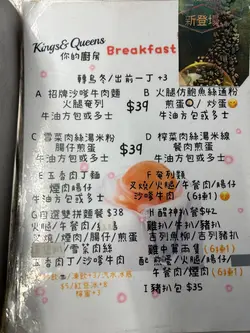 新登場
Kings& Queens
你的廚房
Breakfast
轉烏冬/出前一丁 +3
A 招牌沙嗲牛肉麵
火腿奄列
牛油方包或多士
$39
B 火腿仿鮑魚絲通粉
煎蛋 / 炒蛋
牛油方包或多士
C 雪菜肉絲湯米粉
腸仔煎蛋
牛油方包或多士
$39
D 榨菜肉絲湯米線
餐肉煎蛋
牛油方包或多士
E 五香肉丁麵
煙肉腸仔
牛油方包或多士
F 奄列類
叉燒/火腿/牛餐肉/腸仔
沙嗲牛肉 (6揀1)
G 自選雙拼麵餐 $38
火腿/牛餐肉/
叉燒/煙肉/腸仔/煎蛋
雪菜肉絲
五香肉丁/沙嗲牛肉
H 醒神扒餐 $42
雞扒/牛扒/豬扒
吉列魚柳/吉列豬扒
雞中翼兩隻 (6揀1)
配 火腿/火腿/牛餐肉
煙肉/腸仔 (6揀1)
I 豬扒包 $35